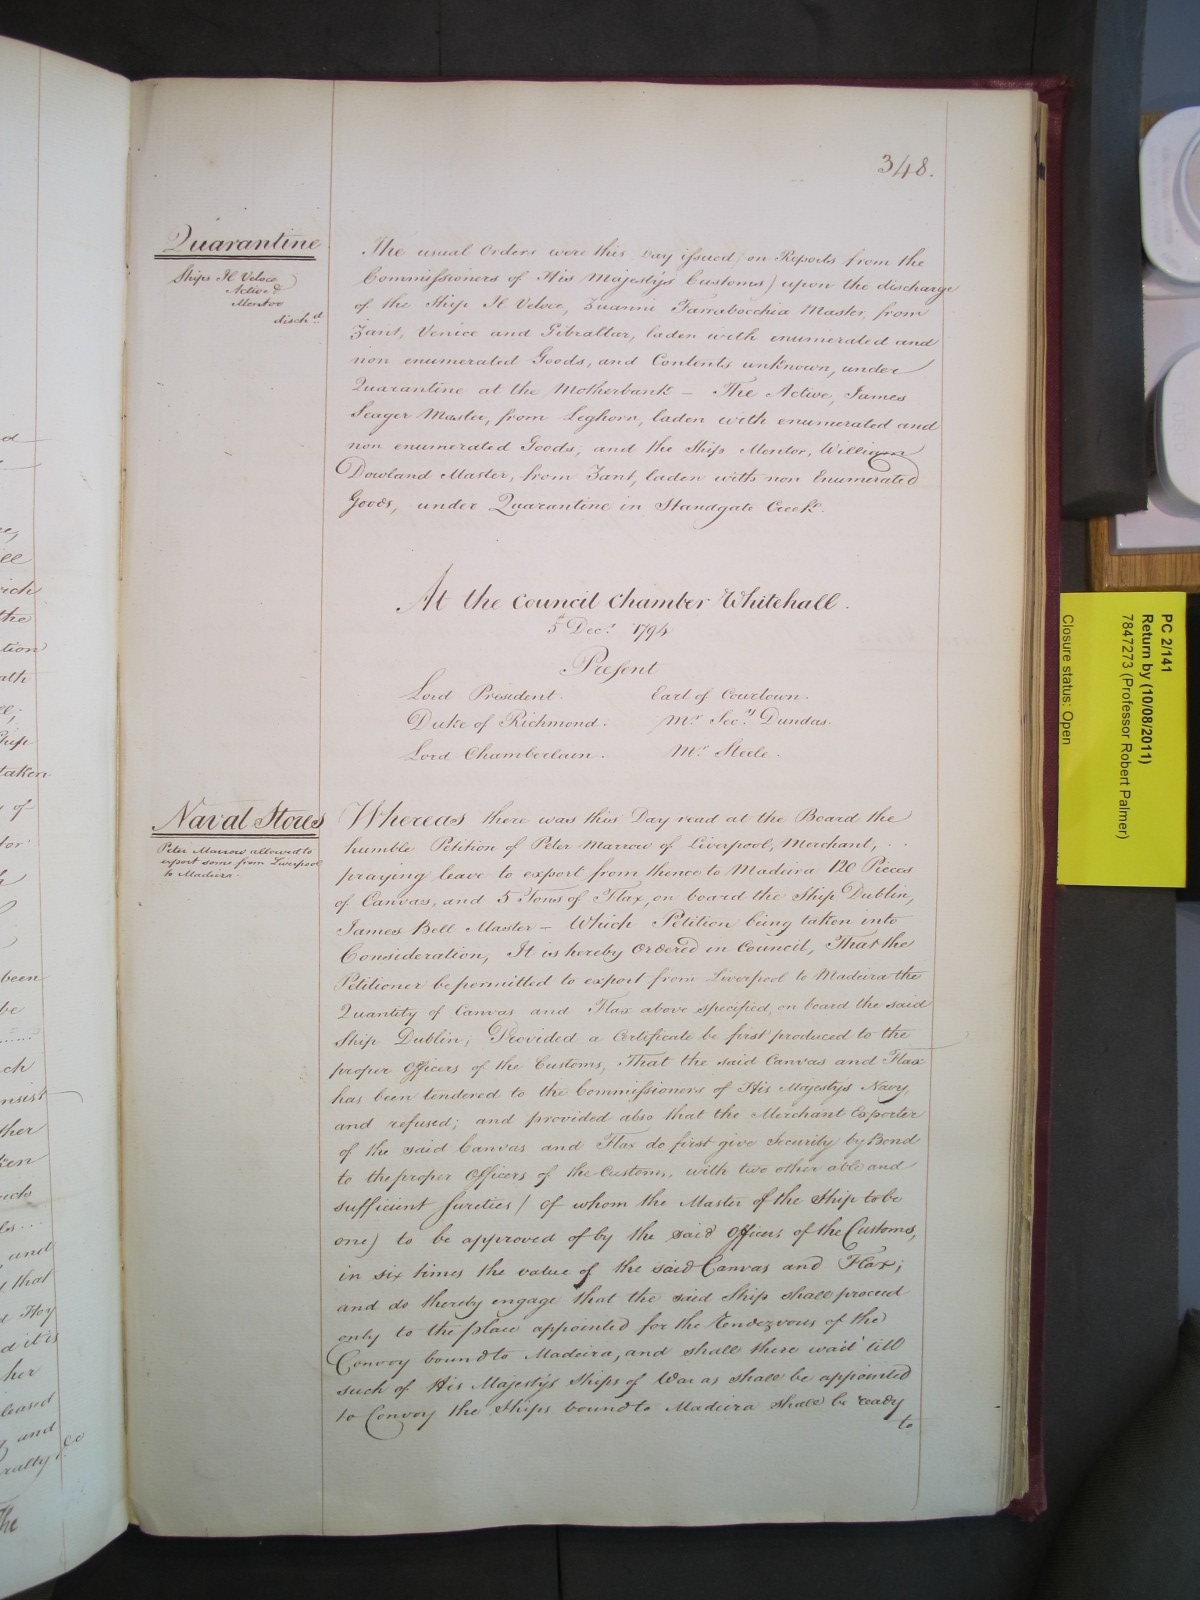 348.
Quarantine
Ships Il Veloce
Active &
Mentor
disch.d
The usual Orders were this Day issued (on Reports from the
Commissioners of His Majesty's Customs) upon the discharge
of the Ship Il Veloce, Zuanni Tarrabocchia Master, from
Zant, Venice and Gibraltar, laden with enumerated and
non enumerated Goods, and Contents unknown, under
Quarantine at the Motherbank – The Active, James
Seager Master, from Leghorn, laden with enumerated and
non enumerated Goods, and the Ship Mentor, William
Dowland Master, from Zant, laden with non Enumerated
Goods, under Quarantine in Standgate Creek.
At the Council Chamber Whitehall.
5th Decr. 1794
Present
Lord President. Earl of Courtown.
Duke of Richmond. Mr. Secry. Dundas.
Lord Chamberlain. Mr. Steele.
Naval Stores
Peter Marrow allowed to
export some from Liverpool
to Madeira.
Whereas there was this Day read at the Board the
humble Petition of Peter Marrow of Liverpool, Merchant,
praying leave to export from thence to Madeira 120 Pieces
of Canvas, and 5 Tons of Flax, on board the Ship Dublin,
James Bell Master – Which Petition being taken into
Consideration, It is hereby Ordered in Council, That the
Petitioner be permitted to export from Liverpool to Madeira the
Quantity of Canvas and Flax above specified, on board the said
Ship Dublin; Provided a Certificate be first produced to the
proper Officers of the Customs, That the said Canvas and Flax
has been tendered to the Commissioners of His Majestys Navy,
and refused; and provided also that the Merchant Exporter
of the said Canvas and Flax do first give Security by Bond
to the proper Officers of the Customs, with two other able and
sufficient sureties (of whom the Master of the Ship to be
one) to be approved of by the said Officers of the Customs,
in six times the value of the said Canvas and Flax;
and do thereby engage that the said Ship shall proceed
only to the place appointed for the Rendezvous of the
Convoy bound to Madeira, and shall there wait till
such of His Majesty's Ships of War as shall be appointed
to Convoy the Ships bound to Madeira shall be ready
to
PC 2/141
Return by (10/08/2011)
7847273 (Professor Robert Palmer)
Closure status: Open